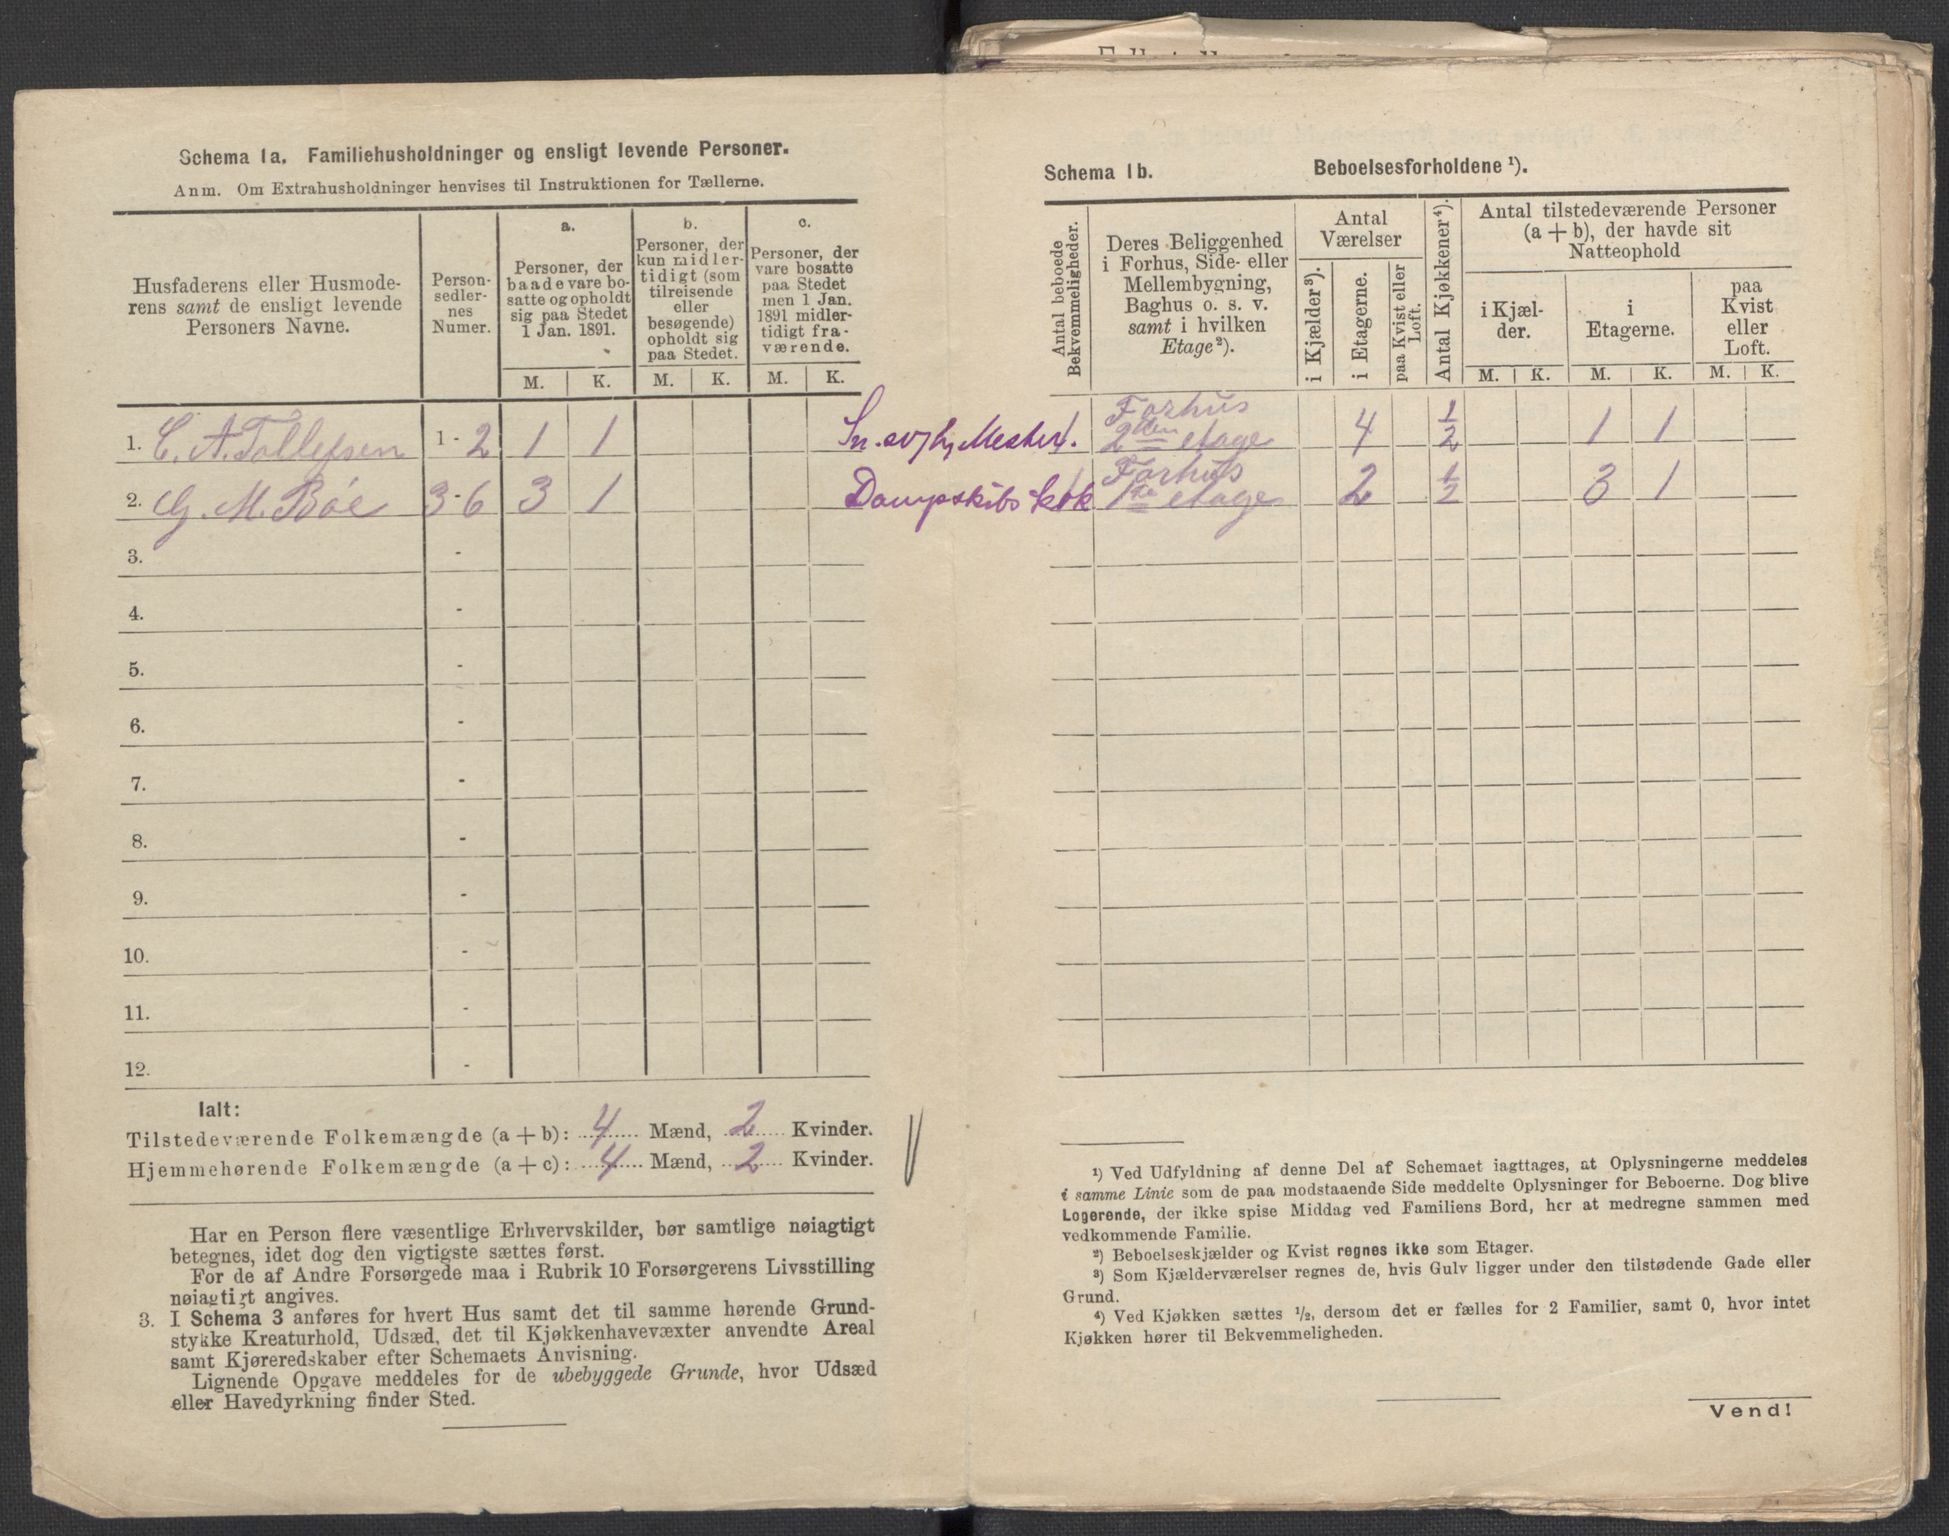 Schema 1a. Familiehusholdninger og ensligt levende Personer.
Anm. Om Extrahusholdninger henvises til Instruktionen for Tællerne.
Husfaderens eller Husmode-
rens samt de ensligt levende
Personers Navne.
Person-
sedler-
nes
Numer.
a.
Personer, der
baade vare bo-
satte og opholdt
sig paa Stedet
1 Jan. 1891.
b.
Personer, der
kun midler-
tidigt (som
tilreisende
eller
besøgende)
opholdt sig
paa Stedet.
c.
Personer, der
vare bosatte
paa Stedet
men 1 Jan.
1891 midler-
tidigt fra-
værende.
M. K. M. K. M. K.
1. C. A. Tollefsen 1 - 2 1 1
2. G. M. Bøe 3 - 6 3 1
3. -
4. -
5. -
6. -
7. -
8. -
9. -
10. -
11. -
12. -
Ialt:
Tilstedeværende Folkemængde (a + b): 4 Mænd, 2 Kvinder.
Hjemmehørende Folkemængde (a + c): 4 Mænd, 2 Kvinder.
Har en Person flere væsentlige Erhvervskilder, bør samtlige nøiagtigt
betegnes, idet dog den vigtigste sættes først.
For de af Andre Forsørgede maa i Rubrik 10 Forsørgerens Livsstilling
nøiagtigt angives.
3. I Schema 3 anføres for hvert Hus samt det til samme hørende Grund-
stykke Kreaturhold, Udsæd, det til Kjøkkenhavevæxter anvendte Areal
samt Kjøreredskaber efter Schemaets Anvisning.
Lignende Opgave meddeles for de ubebyggede Grunde, hvor Udsæd
eller Havedyrkning finder Sted.
Schema 1b. Beboelsesforholdene ¹).
Antal beboede
Bekvemmeligheder.
Deres Beliggenhed
i Forhus, Side- eller
Mellembygning,
Baghus o. s. v.
samt i hvilken
Etage²).
Antal
Værelser
i Kjælder³).
i Etagerne.
paa Kvist eller
Loft.
Antal Kjøkkener⁴).
Antal tilstedeværende Personer
(a + b), der havde sit
Natteophold
i Kjæl-
der.
i
Etagerne.
paa
Kvist
eller
Loft.
M. K. M. K. M. K.
Mester. 1 Forhus
2den etage 4 ½ 1 1
Dampskibs kok 1 Forhus
1ste etage 2 ½ 3 1
¹) Ved Udfyldning af denne Del af Schemaet iagttages, at Oplysningerne meddeles
i samme Linie som de paa modstaaende Side meddelte Oplysninger for Beboerne. Dog blive
Logerende, der ikke spise Middag ved Familiens Bord, her at medregne sammen med
vedkommende Familie.
²) Beboelseskjælder og Kvist regnes ikke som Etager.
³) Som Kjælderværelser regnes de, hvis Gulv ligger under den tilstødende Gade eller
Grund.
⁴) Ved Kjøkken sættes ½, dersom det er fælles for 2 Familier, samt 0, hvor intet
Kjøkken hører til Bekvemmeligheden.
Vend!